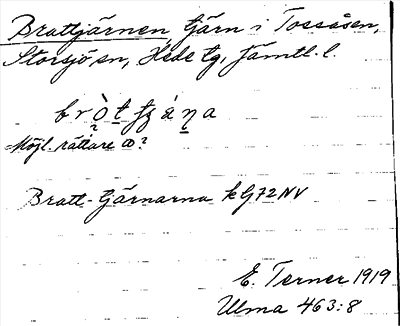 Brattjärnen, tjärn i Tossåsen,
Storsjö sn, Hede tg, Jämtl. l.
Möjl. rättare ɷ?
Bratt-tjärnarna kG72NV
E. Terner 1919
Ulma 463:8